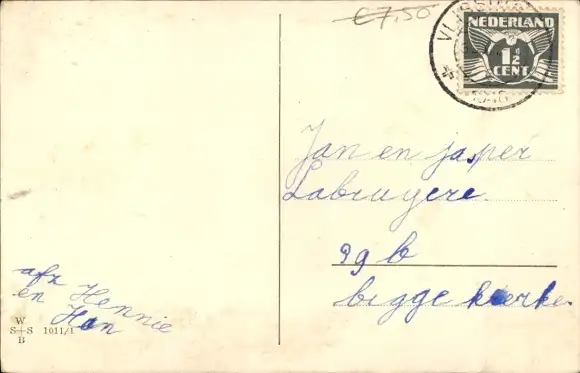 €7,50
VLISSIN
NEDERLAND
1½
CENT
Jan en jasper
Labruyere.
99 b
biggekerke.
afz Hennie
en Han
W
S+S 1011/1
B